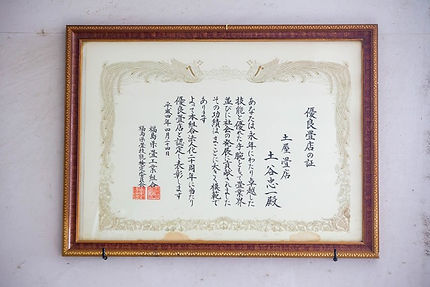 優良畳店の証
土屋畳店
土谷忠一殿
あなたは永年にわたり卓越した
技能と優れた手腕をもって畳業界
並びに社会の発展に貢献されました
その功績はまことに大きく模範で
あります
よって本組合法人化二十周年に当たり
優良畳店と認定し表彰します
平成四年四月二十四日
福島県畳工業組合
福島県畳技能